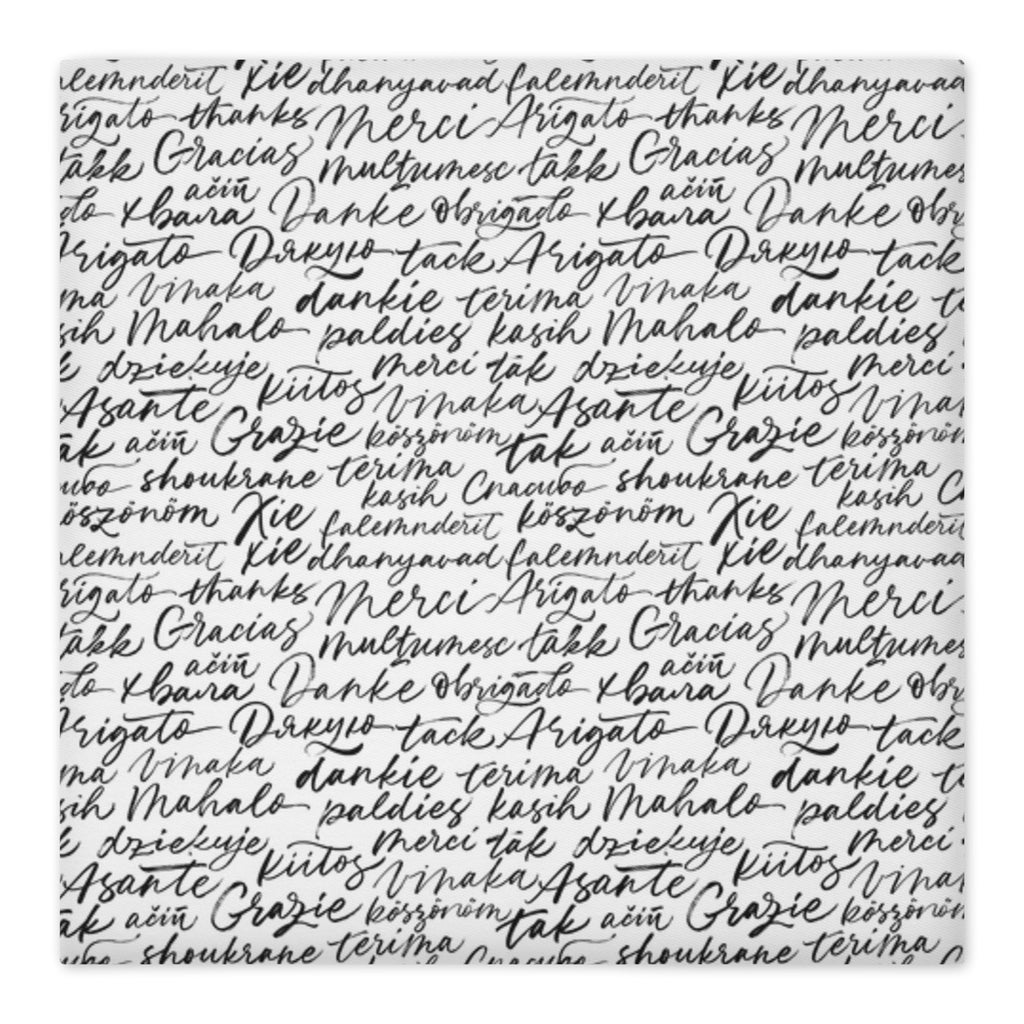 alemnderit Xie dhanyavad falemnderit Xie dhanyavad
rigato thanks Merci Arigato thanks Merci
takk Gracias multumesc takk Gracias multumes
ačiū ačiū
do хвала Danke Obrigado хвала Danke Obr
Arigato Дякую tack Arigato Дякую tack
ma vinaka dankie terima vinaka dankie te
sih Mahalo paldies kasih Mahalo paldies
k dziekuje Merci tak dziekuje Merci
Asante Kiitos Vinaka Asante Kiitos Vinak
ak ačiū Grazie köszönöm tak ačiū Grazie köszönöm
сибо shoukrane terima shoukrane terima
kasih Спасибо kasih С
öszönöm Xie falemnderit köszönöm Xie falemnderit
alemnderit Xie dhanyavad falemnderit Xie dhanyavad
rigato thanks Merci Arigato thanks Merci
takk Gracias multumesc takk Gracias multumes
ačiū ačiū
do хвала Danke Obrigado хвала Danke Obr
Arigato Дякую tack Arigato Дякую tack
ma vinaka dankie terima vinaka dankie te
sih Mahalo paldies kasih Mahalo paldies
k dziekuje Merci tak dziekuje Merci
Asante Kiitos Vinaka Asante Kiitos Vinak
ak ačiū Grazie köszönöm tak ačiū Grazie köszönöm
сибо shoukrane terima Спасибо shoukrane terima